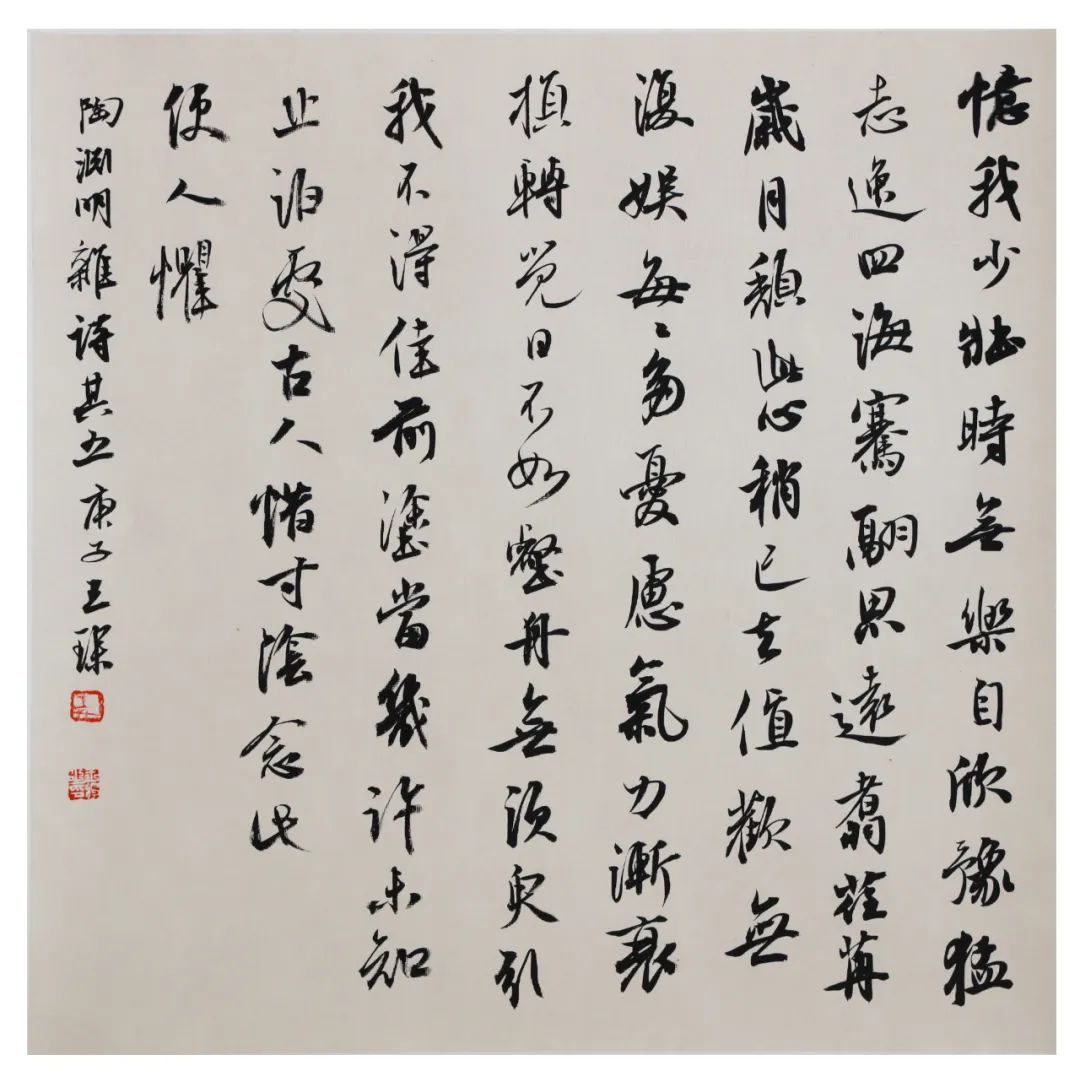 憶我少壯時無樂自欣豫猛
志逸四海騫翮思遠翥荏苒
歲月頹此心稍已去值歡無
復娛每々多憂慮氣力漸衰
損轉覺日不如壑舟無須臾引
我不得住前塗當幾許未知
止泊處古人惜寸陰念此
使人懼
陶淵明雜詩其五庚子王琛